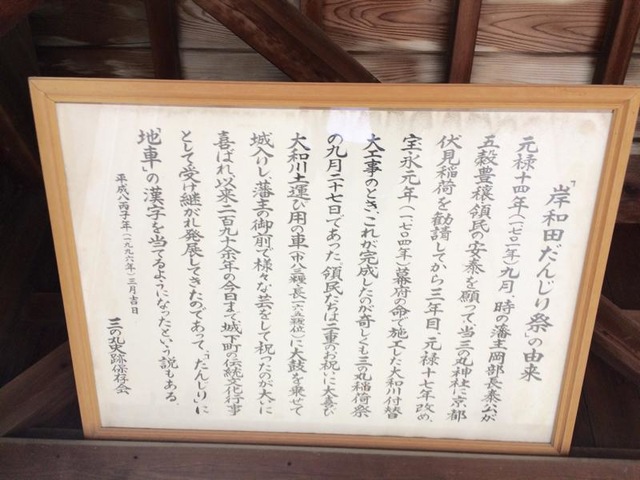 「岸和田だんじり祭」の由来
元禄十四年(一七〇一年)九月、時の藩主岡部長泰公が
五穀豊穣、領民の安泰を願って当三の丸神社に京都
伏見稲荷を勧請してから三年目、元禄十七年改め、
宝永元年(一七〇四年)幕府の命で施工した大和川付替
大工事のとき、これが完成したのが奇しくも三の丸稲荷祭
の九月二十七日であった。領民たちは二重のお祝いに大喜び
大和川土運び用の車(巾八三糎、長一六五糎位)に大鼓を乗せて
城入りし、藩主の御前で様々な芸をして祝ったのが大に
喜ばれ以来二百九十余年の今日まで城下町の伝統文化行事
として受け継がれ発展してきたのであって、「だんじり」に
「地車」の漢字を当てるようになったという説もある。
平成八丙子年(一九九六年)三月吉日
三の丸史跡保存会